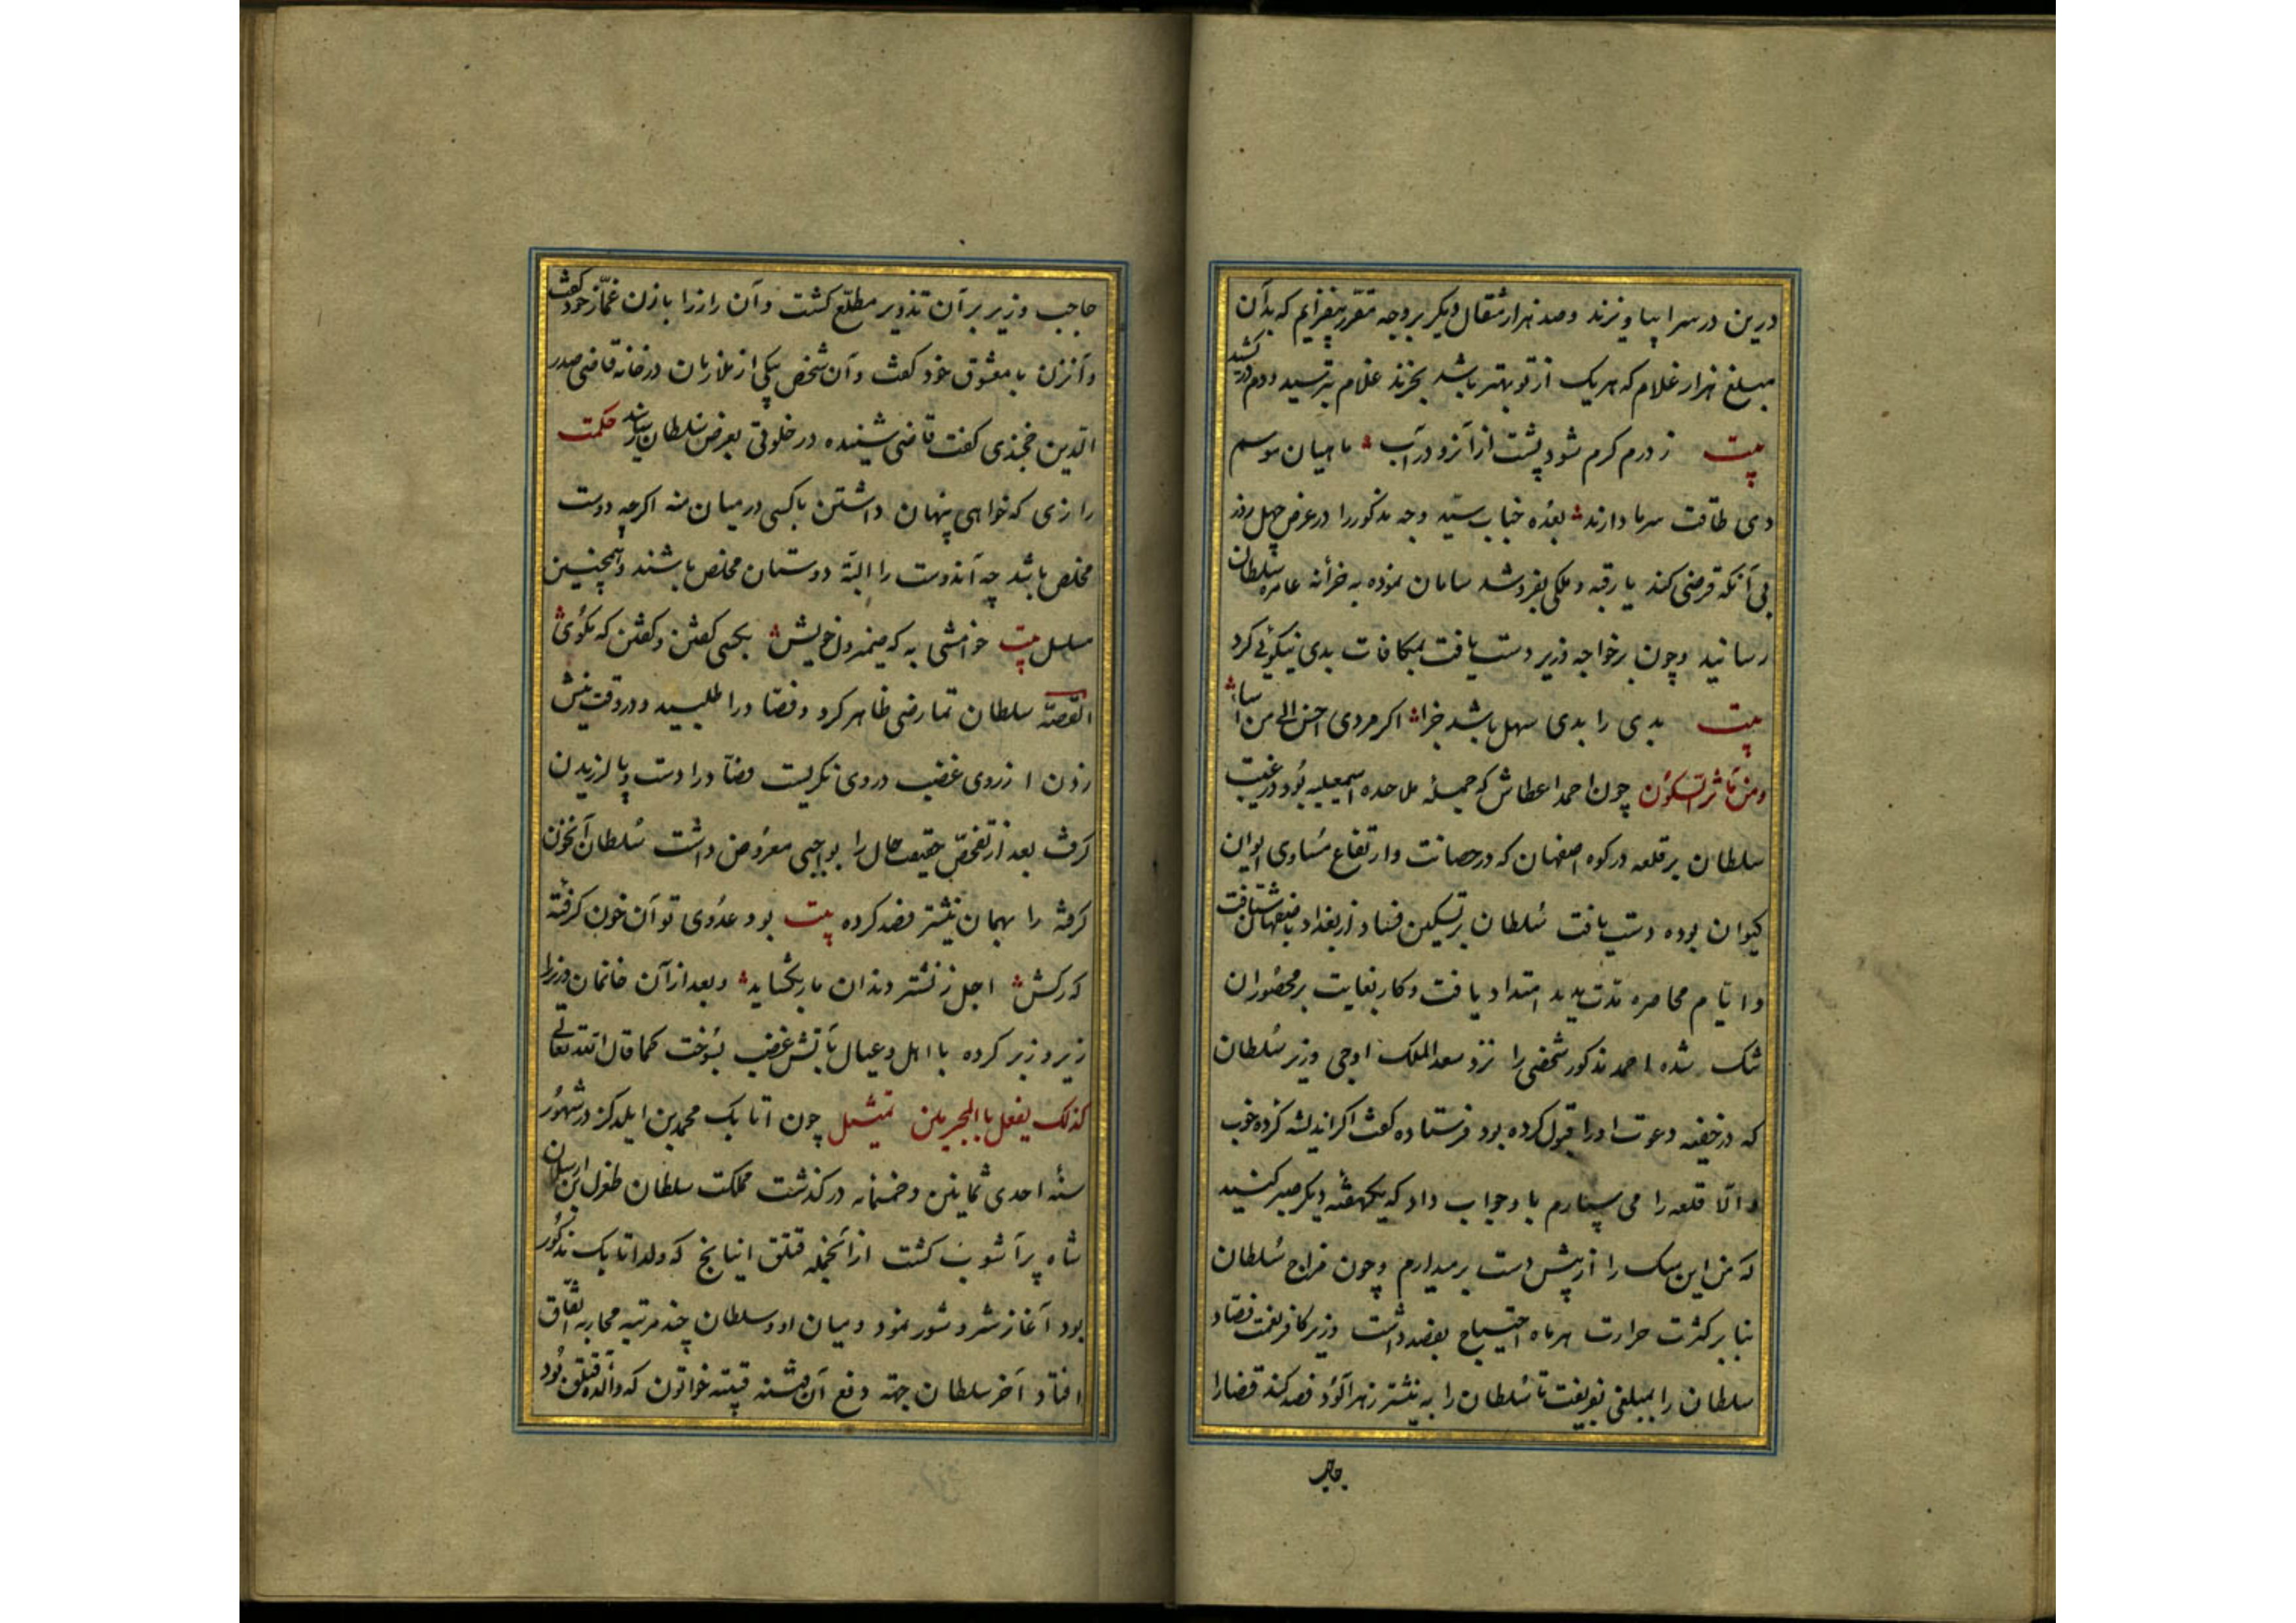 درین در سرا بیاویزند و صد هزار مثقال دیکر بر وجه مقرر بیفزایم که بدان
مبلغ هزار غلام که هر یک از تو بهتر باشد بخرند غلام بترسید و دم در کشید
بیت زدرم کرم شود پشت از آنرو در آب ماهیان موسم
دی طاقت سرما دارند بعده جناب سید وجه مذکور را در عرض چهل روز
بی آنکه قرضی کند یا رقبه و ملکی بفروشد سامان نموده به خزانه عامره سلطان
رسانید و چون بر خواجه وزیر دست یافت بمکافات بدی نیکوئی کرد
بیت بدی را بدی سهل باشد جزا اکر مردی احسن الی من اسا
چون احمد عطاش که جمله ملاحده اسمعیلیه بود در غیبت
سلطان بر قلعه در کوه اصفهان که در حصانت و ارتفاع مساوی ایوان
کیوان بوده دست یافت سلطان بر تسکین فساد از بغداد باصفهان شتافت
و ایام محاصره مدت مدید امتداد یافت و کار بغایت بر محصوران
تنک شده احمد مذکور شخصی را نزد سعد الملک اوجی وزیر سلطان
که در خفیه دعوت او را قبول کرده بود فرستاده کفت اکر اندیشه کرده خوب
والّا قلعه را می سپارم با و جواب داد که یکهفته دیکر صبر کنید
که من این سک را از پیش دست بر میدارم و چون مزاج سلطان
بنا بر کثرت حرارت هر ماه احتیاج بفصد داشت وزیر کافر نعمت فصاد
سلطان را بمبلغی بفریفت تا سلطان را به نیشتر زهرآلود فصد کند قضا را
حاجب
حاجب وزیر بر آن تذویر مطلّع کشت و آن راز را با زن غمّاز خود کفت
و آنزن با معشوق خود کفت و آن شخص بیکی از ملازمان در خانه قاضی صدر
الدین خجندی کفت قاضی شنیده در خلوتی بعرض سلطان رسانید حکمت
رازی که خواهی پنهان داشتن با کسی در میان منه اکرچه دوست
مخلص باشد چه آندوست را البته دوستان مخلص باشند و همچنین
مسلسل بیت خوامشی به که ضمیر دل خویش بکسی کفتن و کفتن که مکوی
القصّه سلطان تمارضی ظاهر کرد و فصّاد را طلبید و در وقت نیش
زدن از روی غضب در وی نکریست فصّاد را دست و پا لرزیدن
کرفت بعد از تفحّص حقیقت حال را بواجبی معروض داشت سلطان آنخون
کرفته را بهمان نیشتر فصد کرده بیت بود عدوی تو آن خون کرفته
که رکش اجل ز نشتر دندان مار بکشاید و بعد از آن خانمان وزیر را
زیر و زبر کرده با اهل و عیال بآتش غضب بسوخت کما قال الله تعالی
کذلک یفعل بالمجرمین تمثیل چون اتابک محمد بن ایلدکز در شهور
سنه احدی ثمانین و خمسمایه درکذشت مملکت سلطان طغرل بن ارسلان
شاه پر آشوب کشت از آنجمله قتلق اینانج که ولد اتابک مذکور
بود آغاز شر و شور نمود و میان او و سلطان چند مرتبه محاربه اتّفاق
افتاد آخر سلطان جهته دفع آن فتنه قتیبه خواتون که والده قتلق بود